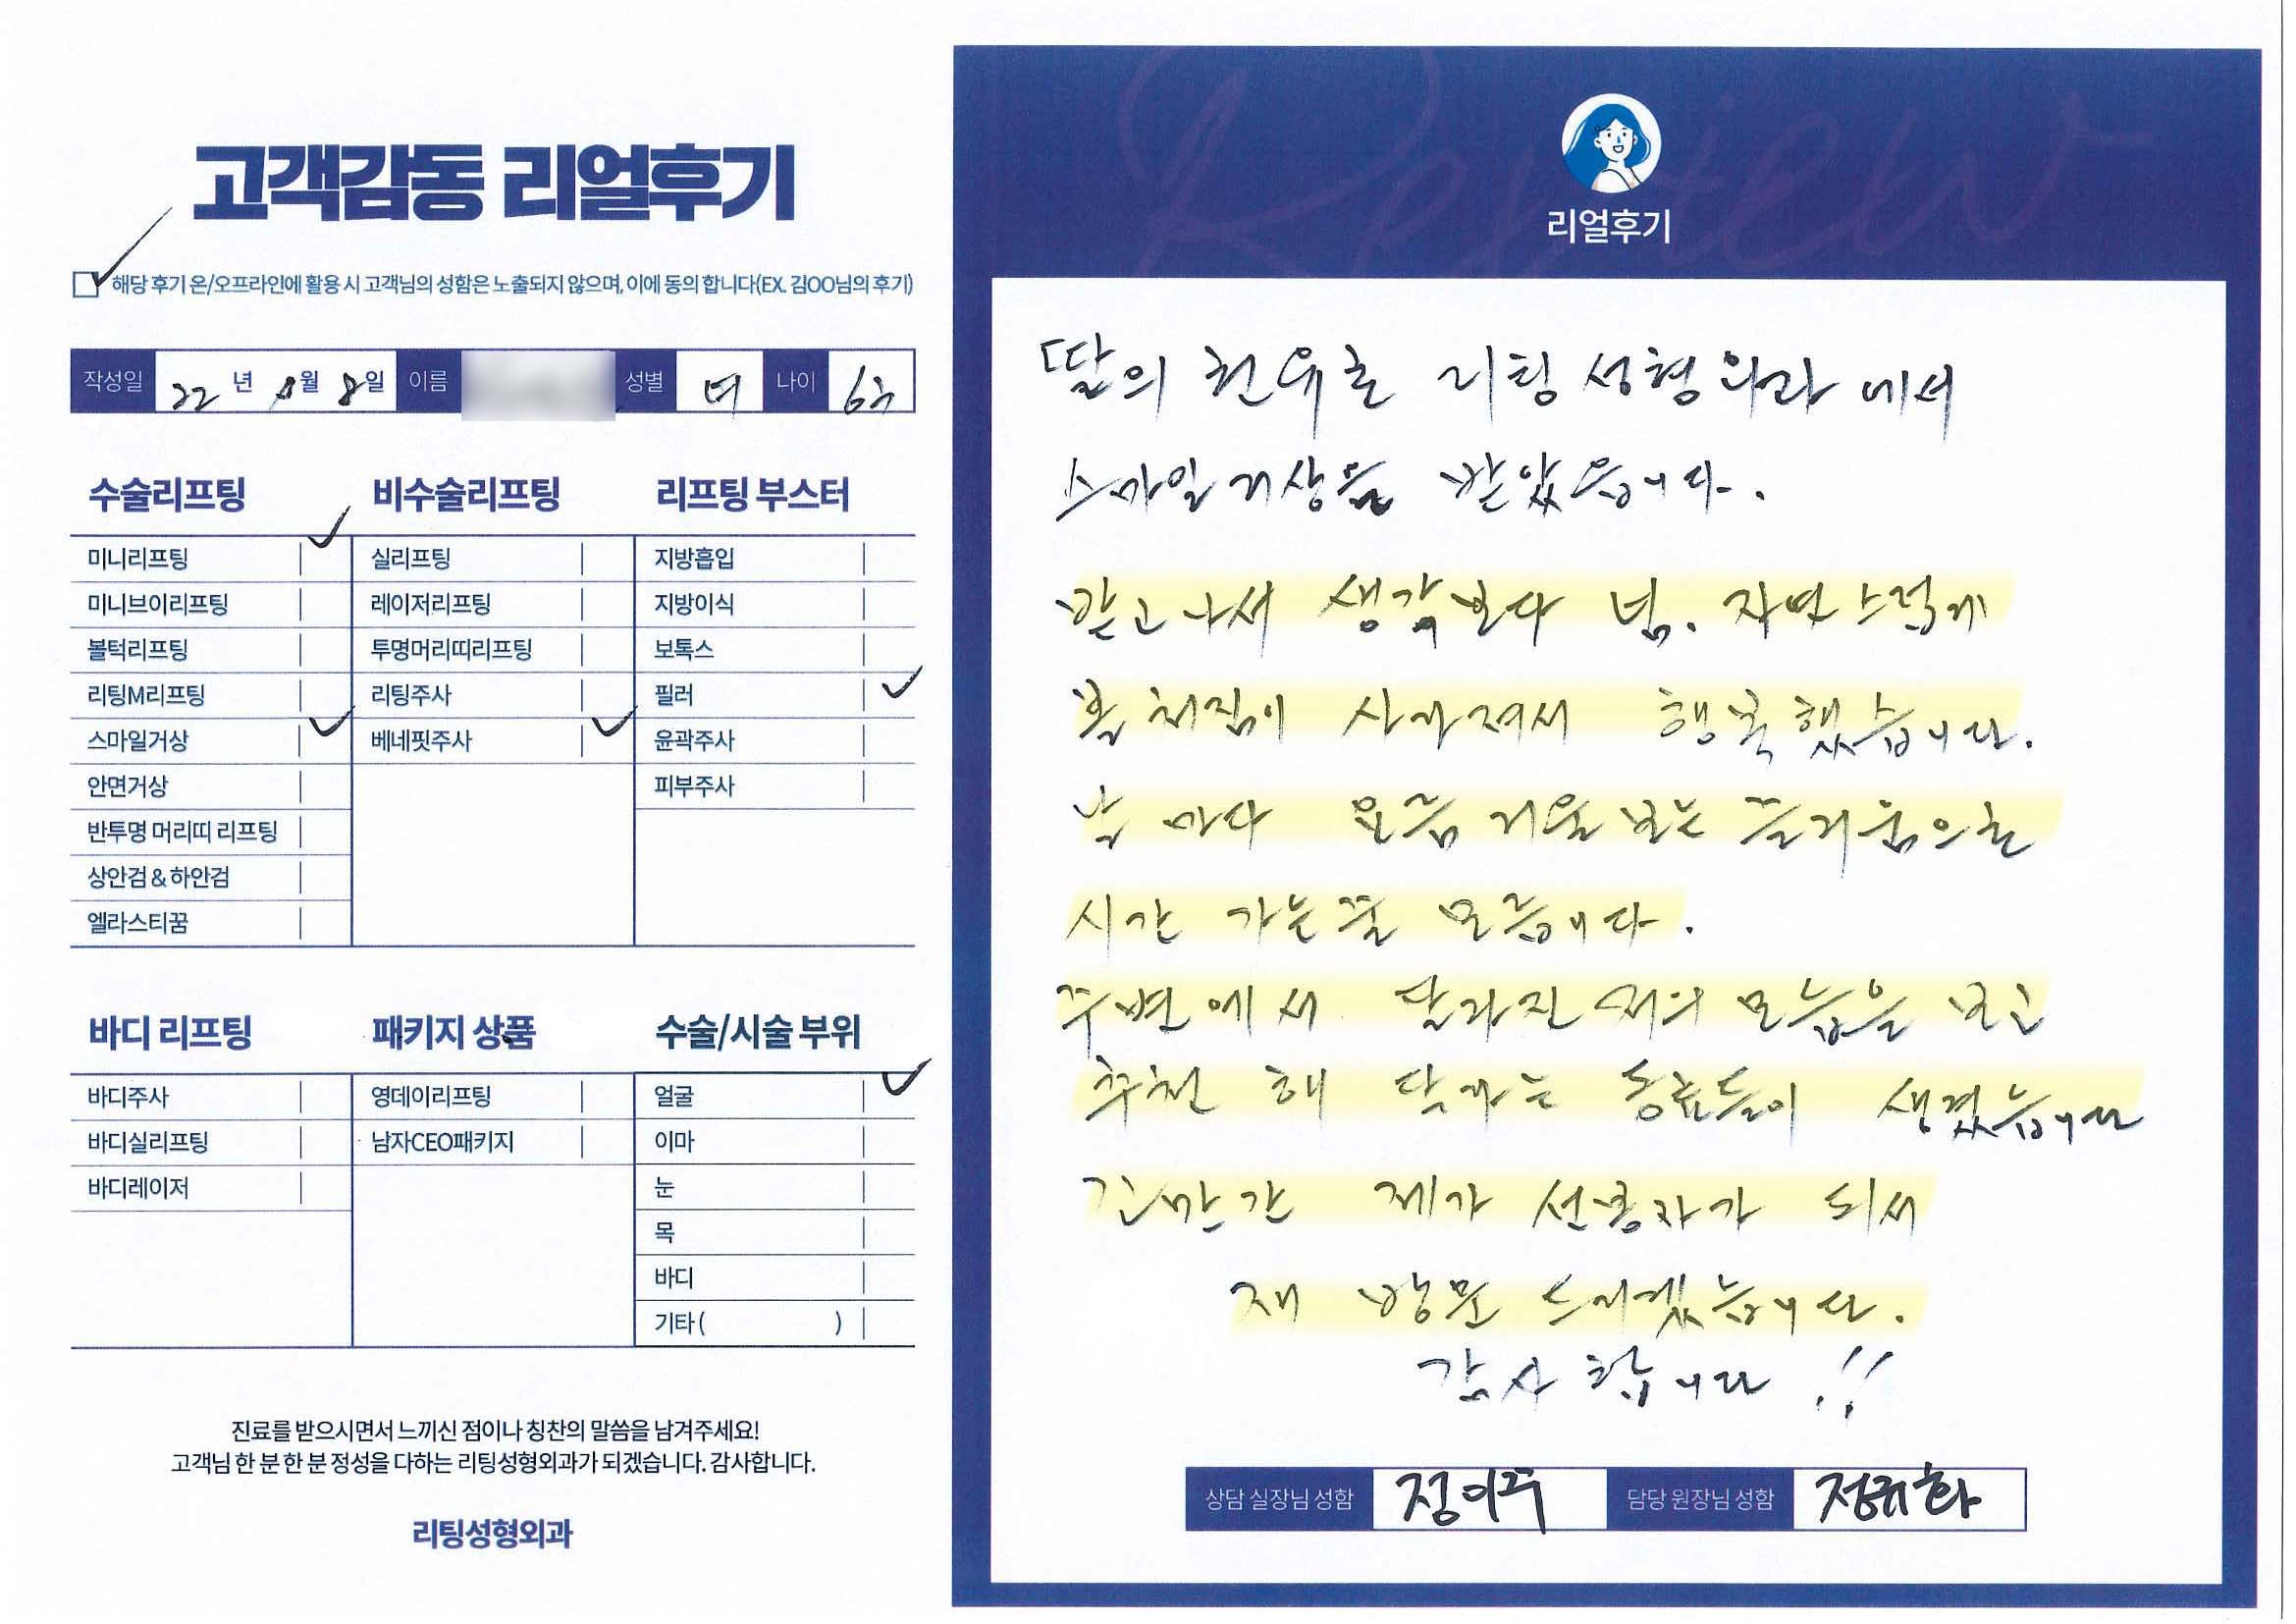 고객감동 리얼후기
해당 후기 온/오프라인에 활용 시 고객님의 성함은 노출되지 않으며, 이에 동의 합니다(EX. 김OO님의 후기)
작성일 22년 8월 8일 이름 성별 여 나이
수술리프팅
미니리프팅
미니브이리프팅
볼턱리프팅
리팅M리프팅
스마일거상
안면거상
반투명 머리띠 리프팅
상안검 & 하안검
엘라스티꿈
비수술리프팅
실리프팅
레이저리프팅
투명머리띠리프팅
리팅주사
베네핏주사
리프팅 부스터
지방흡입
지방이식
보톡스
필러
윤곽주사
피부주사
바디 리프팅
바디주사
바디실리프팅
바디레이저
패키지 상품
영데이리프팅
남자CEO패키지
수술/시술 부위
얼굴
이마
눈
목
바디
기타 ( )
진료를 받으시면서 느끼신 점이나 칭찬의 말씀을 남겨주세요!
고객님 한 분 한 분 정성을 다하는 리팅성형외과가 되겠습니다. 감사합니다.
리팅성형외과
Review
리얼후기
딸의 권유로 리팅성형외과 에서
스마일거상을 받았읍니다.
받고나서 생각보다 넘. 자연스럽게
볼 처짐이 사라져서 행복했습니다.
날 마다 요즘 거울보는 즐거움으로
시간 가는줄 모릅니다.
주변에서 달라진 저의 모습을 보고
추천 해 달라는 동료들이 생겼습니다
근만간 제가 선봉자가 되서
재 방문 드리겠습니다.
감사 합니다 !!
상담 실장님 성함 정이주 담당 원장님 성함 정규화